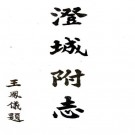 澄城附志
王鳳儀題